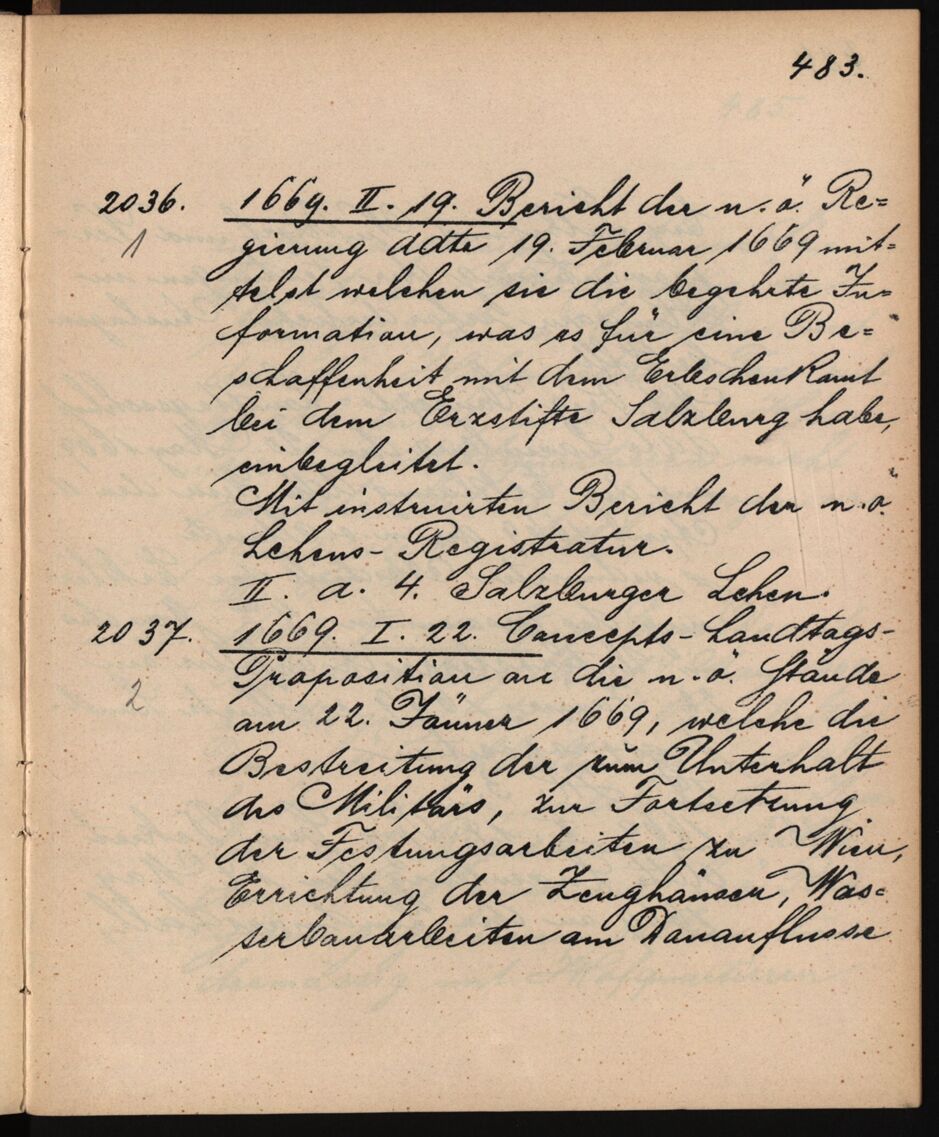 483.
2036. 1669. II. 19. Bericht der n. ö. Re=
1 gierung ddto 19. Februar 1669 mit=
telst welchen sie die begehrte In=
formation, was es für eine Be=
schaffenheit mit dem Erbschenkamt
bei dem Erzstifte Salzburg habe,
einbegleitet.
Mit instruirten Bericht der n. ö.
Lehens-Registratur.
II. a. 4. Salzburger Lehen.
2037. 1669. I. 22. Concepts-Landtags-
2 Proposition an die n. ö. Stände
am 22. Jänner 1669, welche die
Bestreitung der zum Unterhalt
des Militärs, zur Fortsetzung
der Festungsarbeiten zu Wien,
Errichtung der Zeughäuser, Was=
serbauarbeiten am Donauflusse